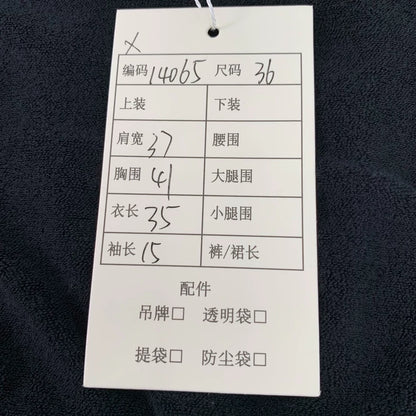 X
编码 14065 尺码 36
上装 下装
肩宽 37 腰围
胸围 41 大腿围
衣长 35 小腿围
袖长 15 裤/裙长
配件
吊牌□ 透明袋□
提袋□ 防尘袋□